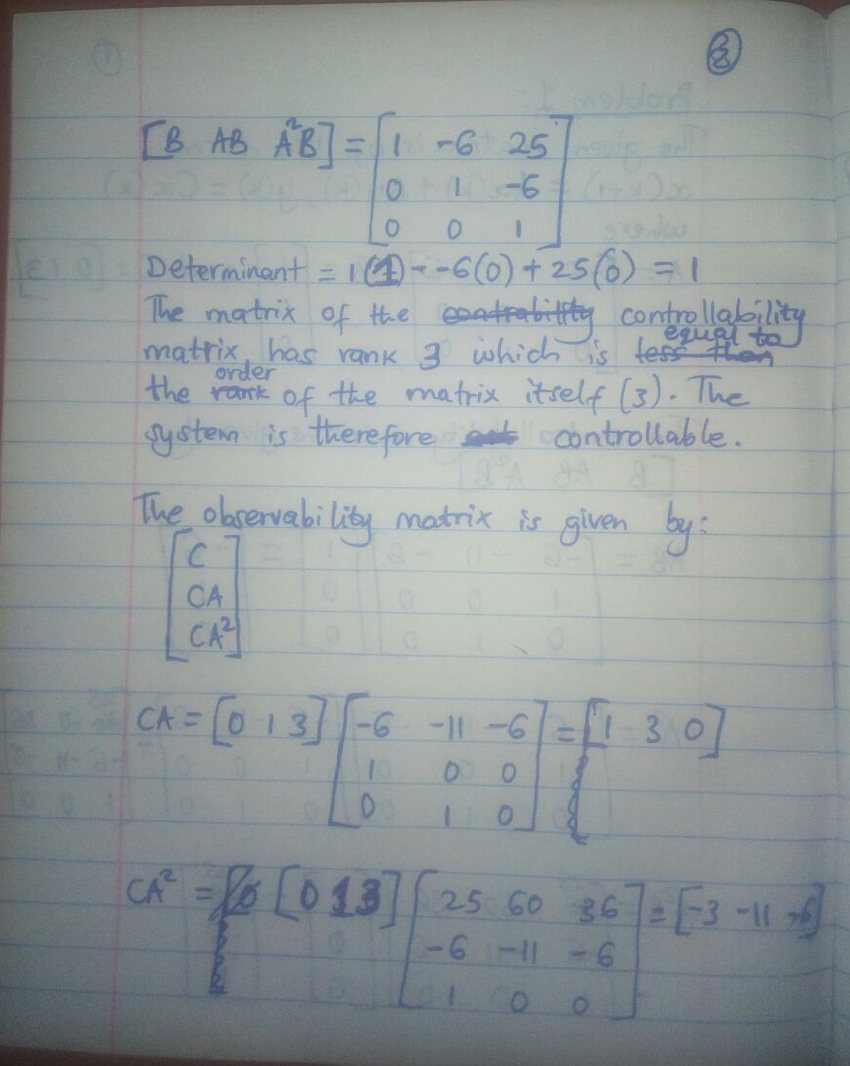 2
[B AB A²B] = [1 -6 25
0 1 -6
0 0 1]
Determinant = 1(1) - -6(0) + 25(0) = 1
The matrix of the contrability controllability
matrix has rank 3 which is less than equal to
the rank order of the matrix itself (3). The
system is therefore not controllable.
The observability matrix is given by:
[C
CA
CA²]
CA = [0 1 3] [-6 -11 -6 = [1 3 0]
1 0 0
0 1 0]
CA² = [0 1 3] [25 60 36 = [-3 -11 -6]
-6 -11 -6
1 0 0]